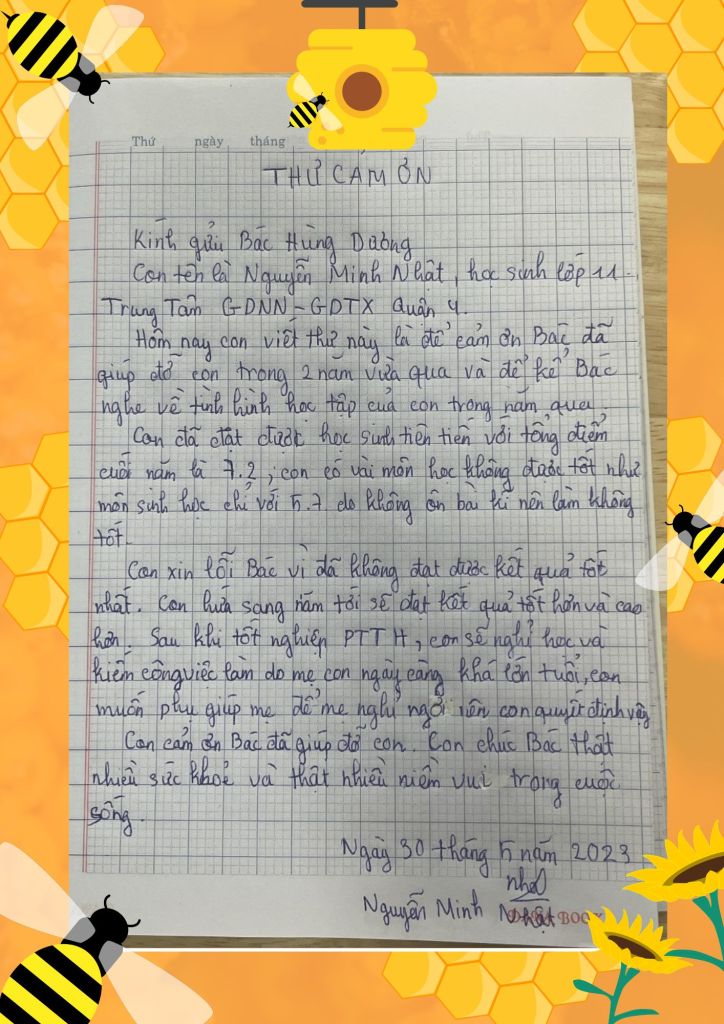 Thứ ngày tháng
THƯ CẢM ƠN
Kính gửi Bác Hùng Dương
Con tên là Nguyễn Minh Nhật, học sinh lớp 11 -
Trung Tâm GDNN-GDTX Quận 4.
Hôm nay con viết thư này là để cảm ơn Bác đã
giúp đỡ con trong 2 năm vừa qua và để kể Bác
nghe về tình hình học tập của con trong năm qua
Con đã đạt được học sinh tiên tiến với tổng điểm
cuối năm là 7.2, con có vài môn học không được tốt như
môn sinh học chỉ với 5.7 do không ôn bài kĩ nên làm không
tốt.
Con xin lỗi Bác vì đã không đạt được kết quả tốt
nhất. Con hứa sang năm tới sẽ đạt kết quả tốt hơn và cao
hơn. Sau khi tốt nghiệp PTTH, con sẽ nghỉ học và
kiếm công việc làm do mẹ con ngày càng khá lớn tuổi, con
muốn phụ giúp mẹ để mẹ nghỉ ngơi nên con quyết định vậy
Con cảm ơn Bác đã giúp đỡ con. Con chúc Bác thật
nhiều sức khoẻ và thật nhiều niềm vui trong cuộc
sống.
Ngày 30 tháng 5 năm 2023
nhật
Nguyễn Minh Nhật
BOOK